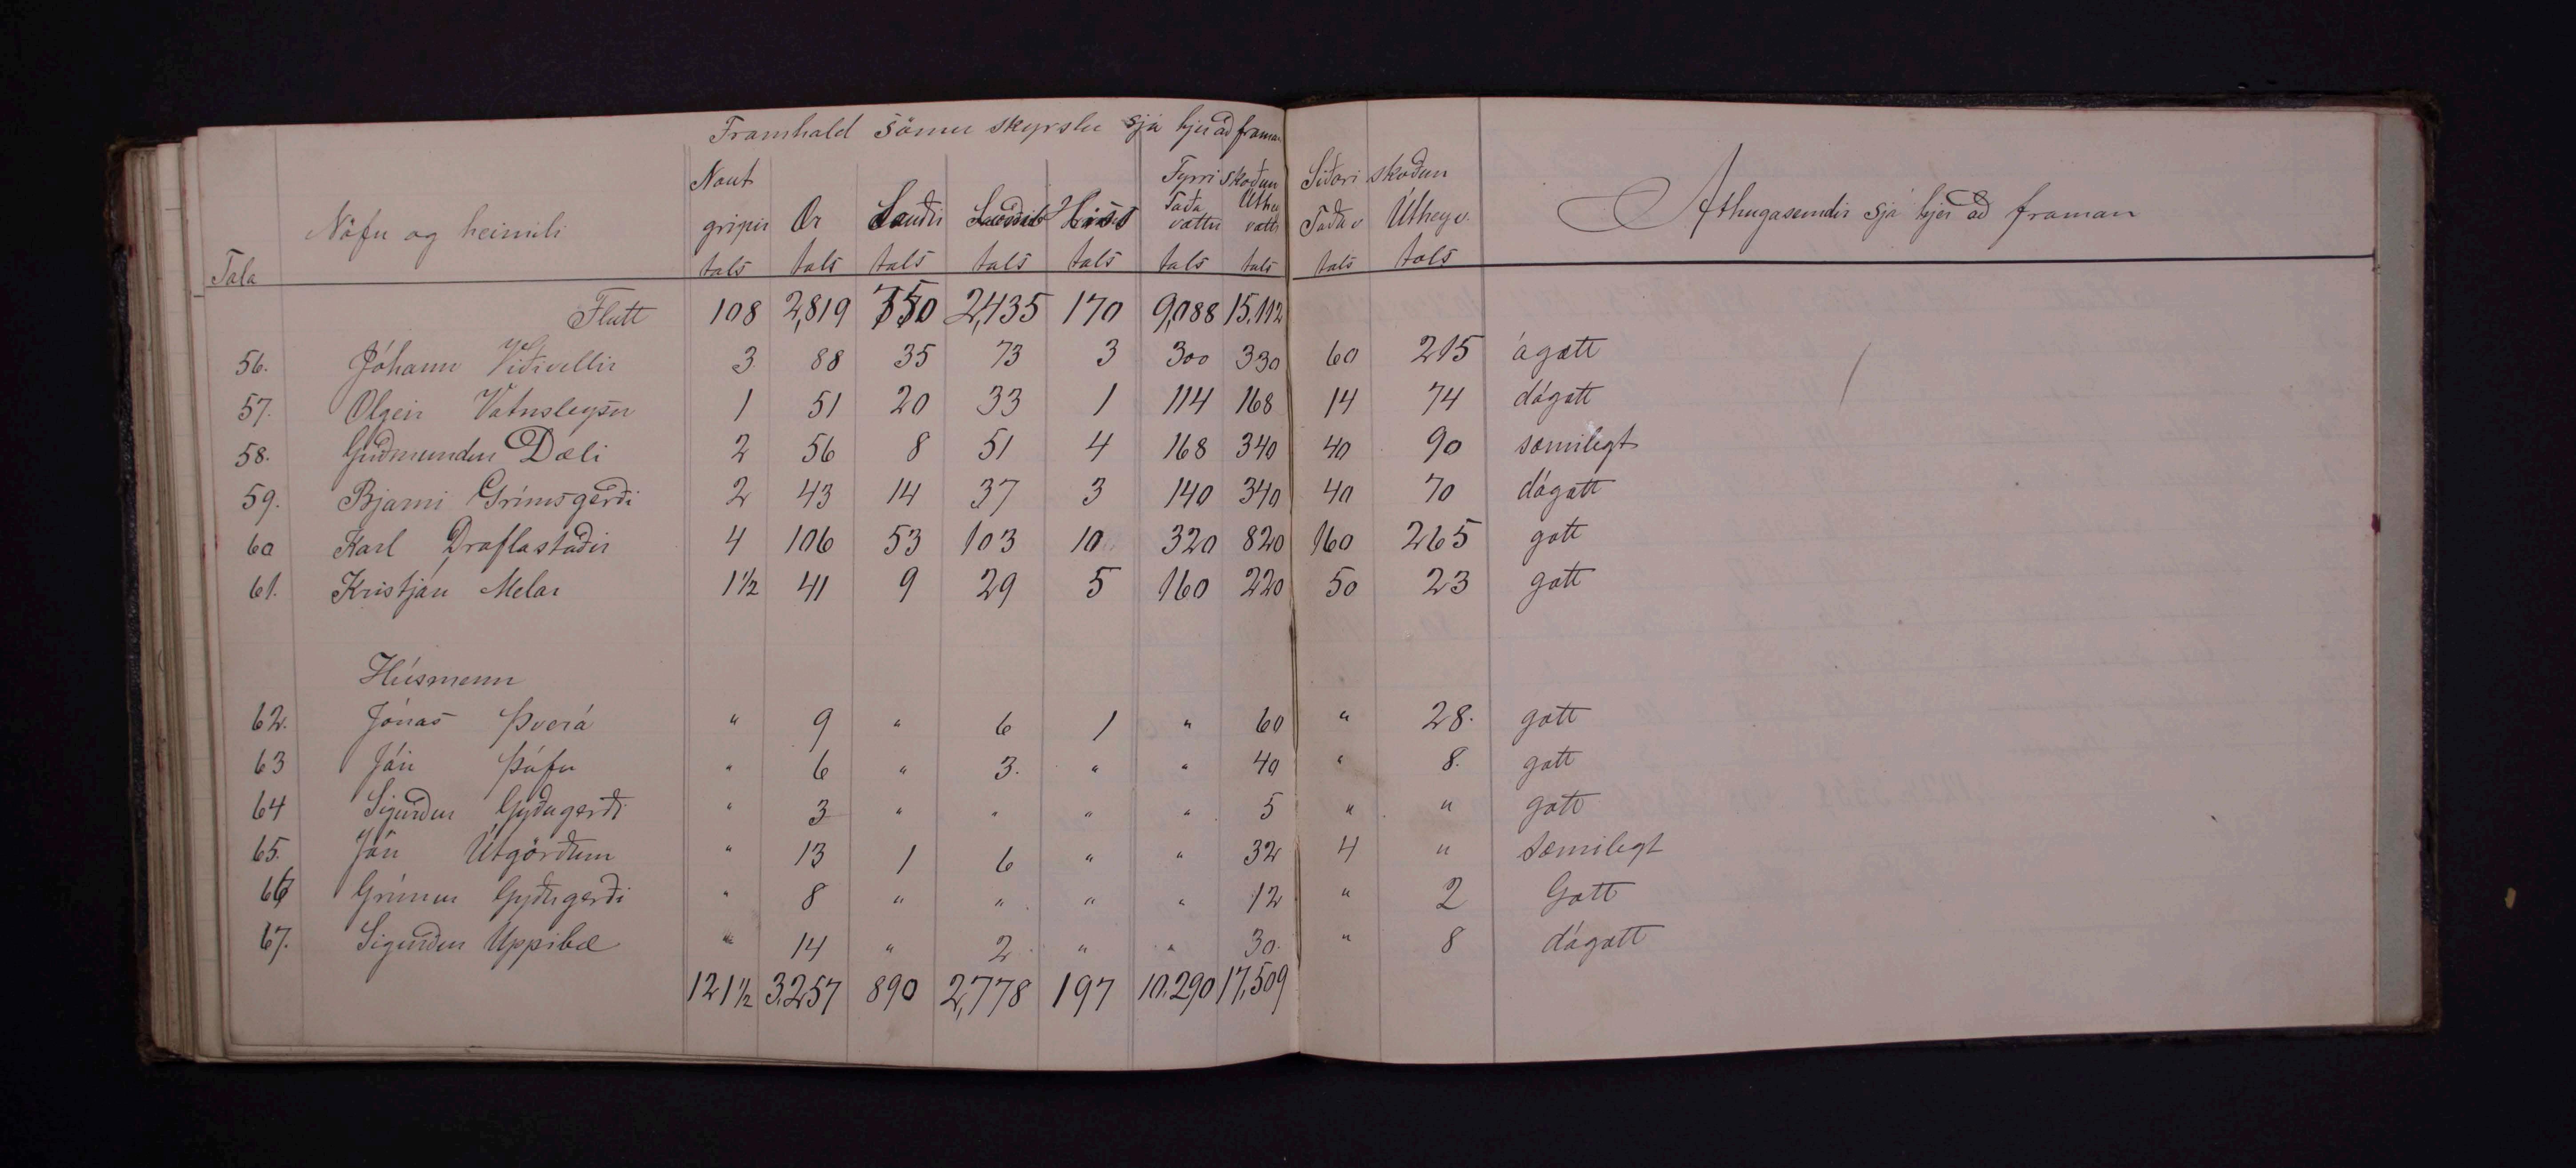 Framhald sömu skyrslu sjá hjer að framan
Tala Nöfn og heimili Naut gripir tals Ær tals Sauðir tals tals Hross tals Fyrri skoðun Taða vættir tals Úthey vætti tals Síðari skoðun Taða v tals Úthey v. tals Athugasemdir sjá hjer að framan
Flutt 108 2,819 750 2,435 170 9,088 15.112
56. Jóhann Víðivellir 3 88 35 73 3 300 330 60 215 ágætt
57. Olgeir Vatnsleysu 1 51 20 33 1 114 168 14 74 dágott
58. Guðmundur Dæli 2 56 8 51 4 168 340 40 90 sæmilegt
59. Bjarni Grímsgerði 2 43 14 37 3 140 340 40 70 dágott
60 Karl Draflastaðir 4 106 53 103 10 320 820 160 265 gott
61. Kristján Melar 1 1/2 41 9 29 5 160 220 50 23 gott
Húsmenn
62. Jónas Þverá " 9 " 6 1 " 60 " 28. gott
63 Jón Þúfu " 6 " 3. " " 40 " 8. gott
64 Sigurður Gyðugerði " 3 " " " " 5 " " gott
65. Jón Útgörðum " 13 1 6 " " 32 4 " Sæmilegt
66 Grímur Gyðugerði " 8 " " " " 12 " 2 Gott
67. Sigurður Uppibæ " 14 " 2 " " 30. " 8 dágott
121 1/2 3.257 890 2,778 197 10.290 17,509